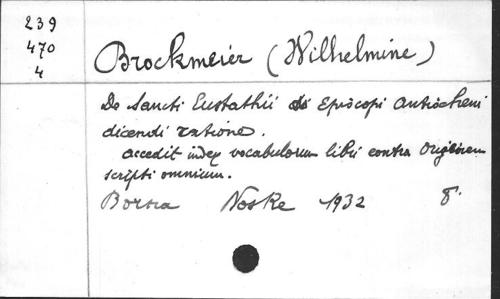 239
470
4
Brockmeier (Wilhelmine)
De Sancti Eustathii Episcopi Antiocheni
dicendi ratione.
accedit index vocabulorum libri contra Origenem
scripti omnium.
Borna Noske 1932 8°.